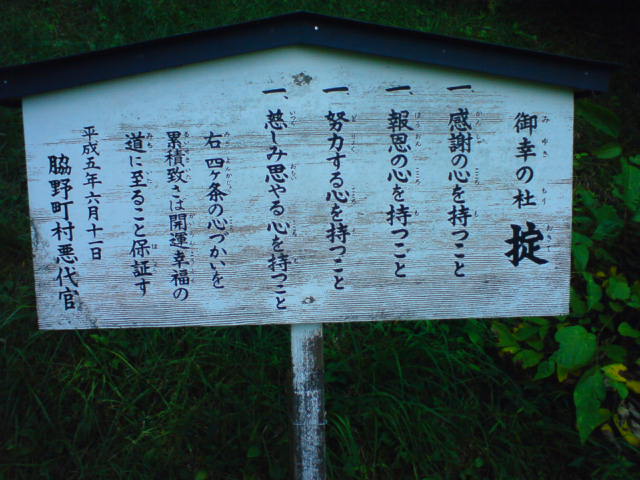 御幸の杜 掟
一、感謝の心を持つこと
一、報恩の心を持つこと
一、努力する心を持つこと
一、慈しみ思やる心を持つこと
右四ヶ条の心づかいを
累積致さば開運幸福の
道に至ること保証す
平成五年六月十一日
脇野町村悪代官